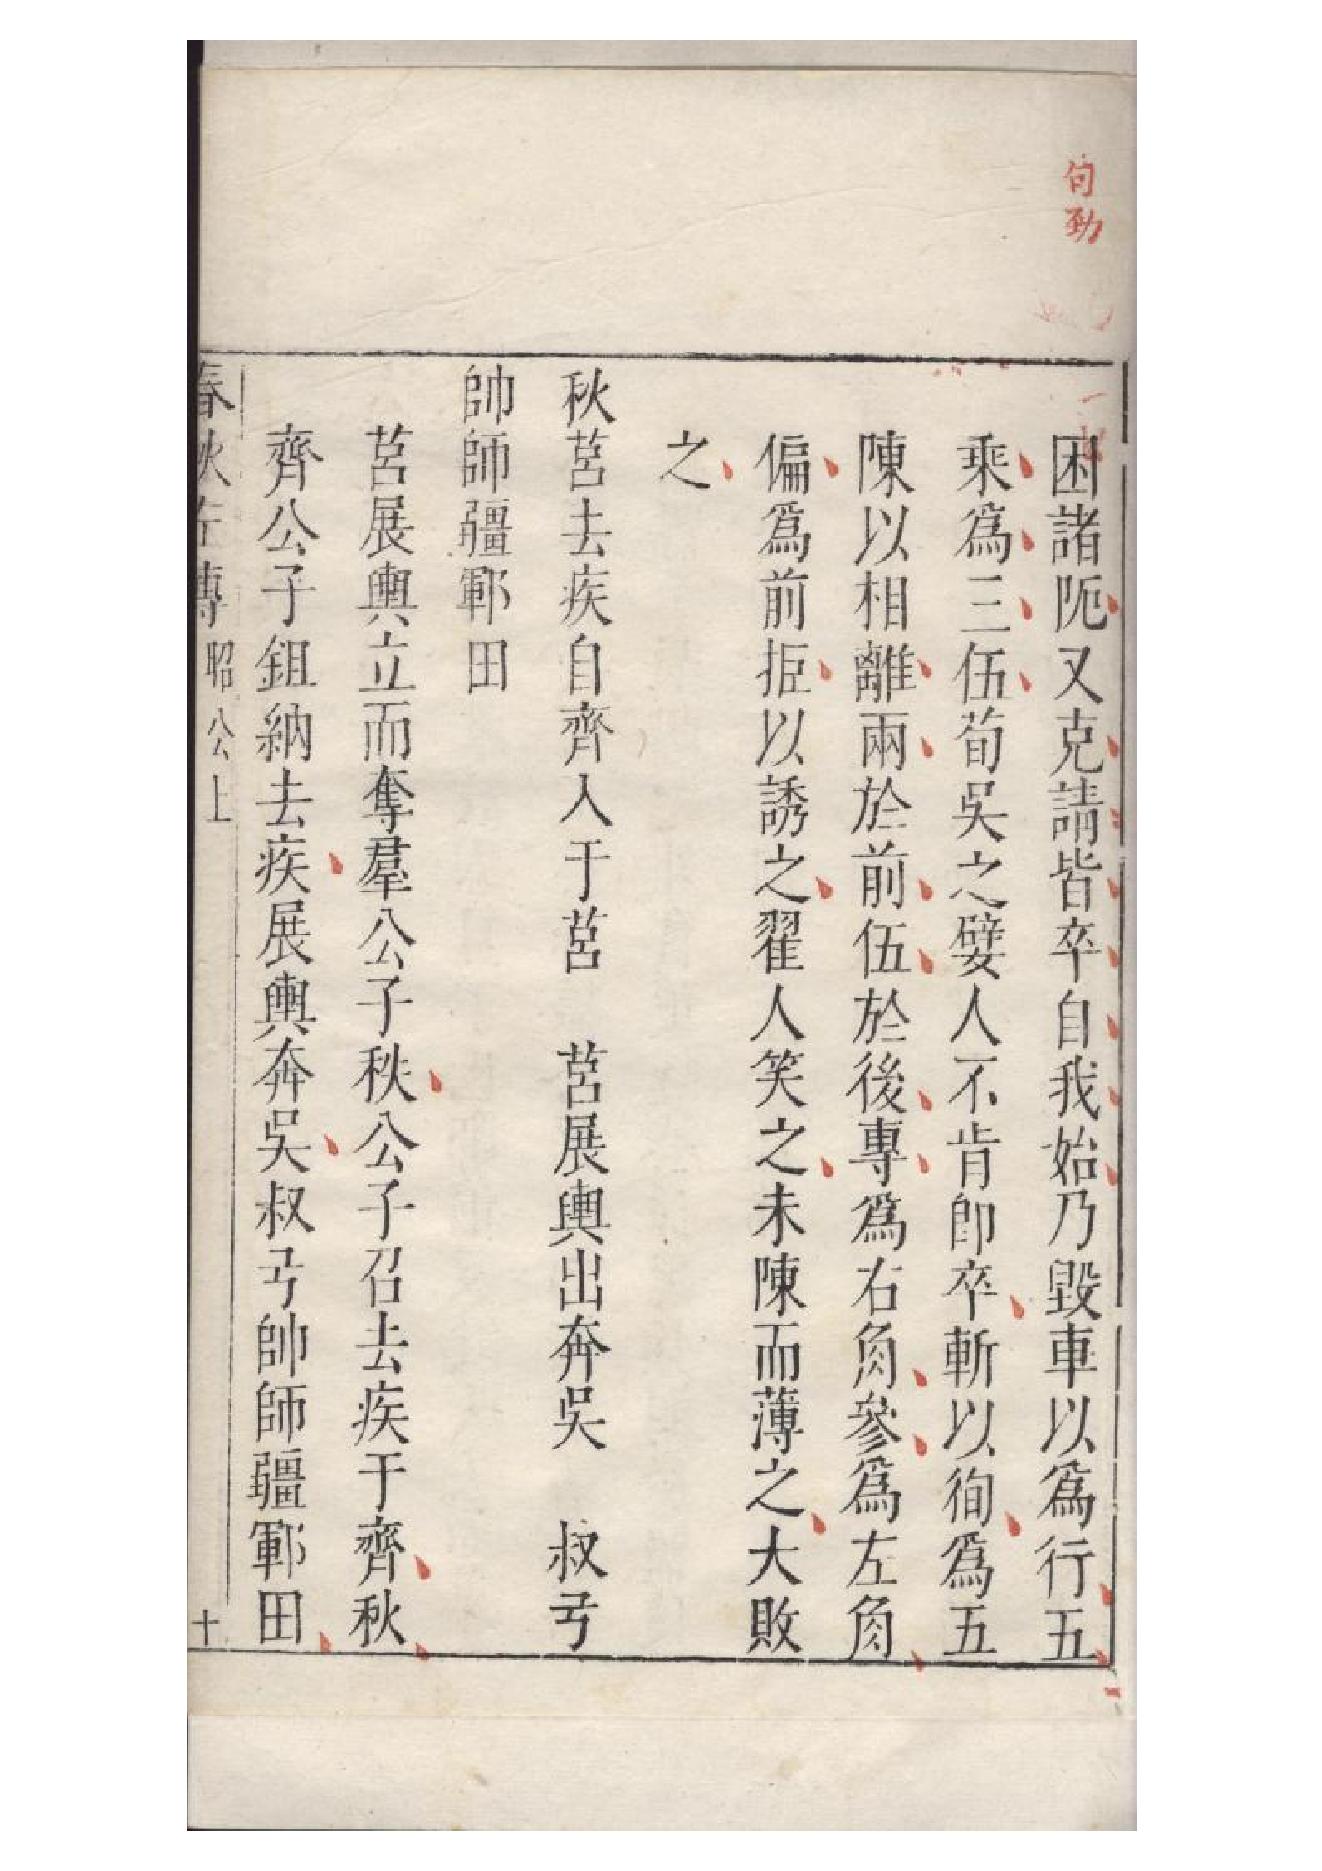 句勁
困諸阨又克請皆卒自我始乃毀車以爲行五
乘爲三伍荀吳之嬖人不肯卽卒斬以徇爲五
陳以相離兩於前伍於後專爲右角參爲左角
偏爲前拒以誘之翟人笑之未陳而薄之大敗
之
秋莒去疾自齊入于莒 莒展輿出奔吳 叔弓
帥師疆鄆田
莒展輿立而奪羣公子秩公子召去疾于齊秋
齊公子鉏納去疾展輿奔吳叔弓帥師疆鄆田
春秋左傳 昭公上 十